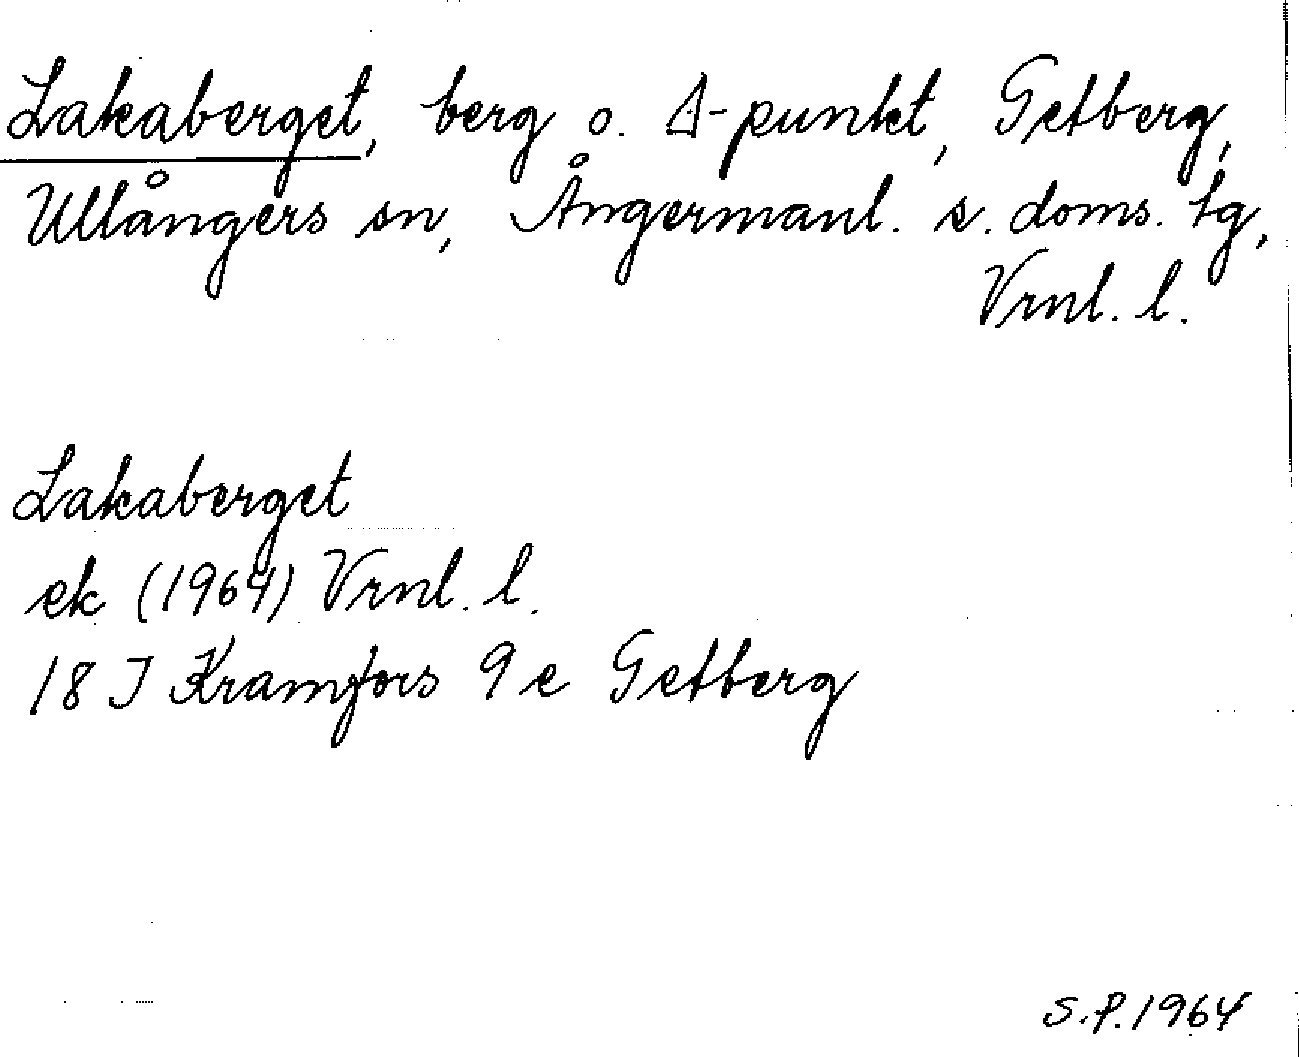 Lakaberget, berg o. Δ-punkt, Getberg,
Ullångers sn, Ångermanl. s. doms. tg,
Vrnl. l.
Lakaberget
ek (1964) Vrnl. l.
18 I Kramfors 9 e Getberg
S.P. 1964